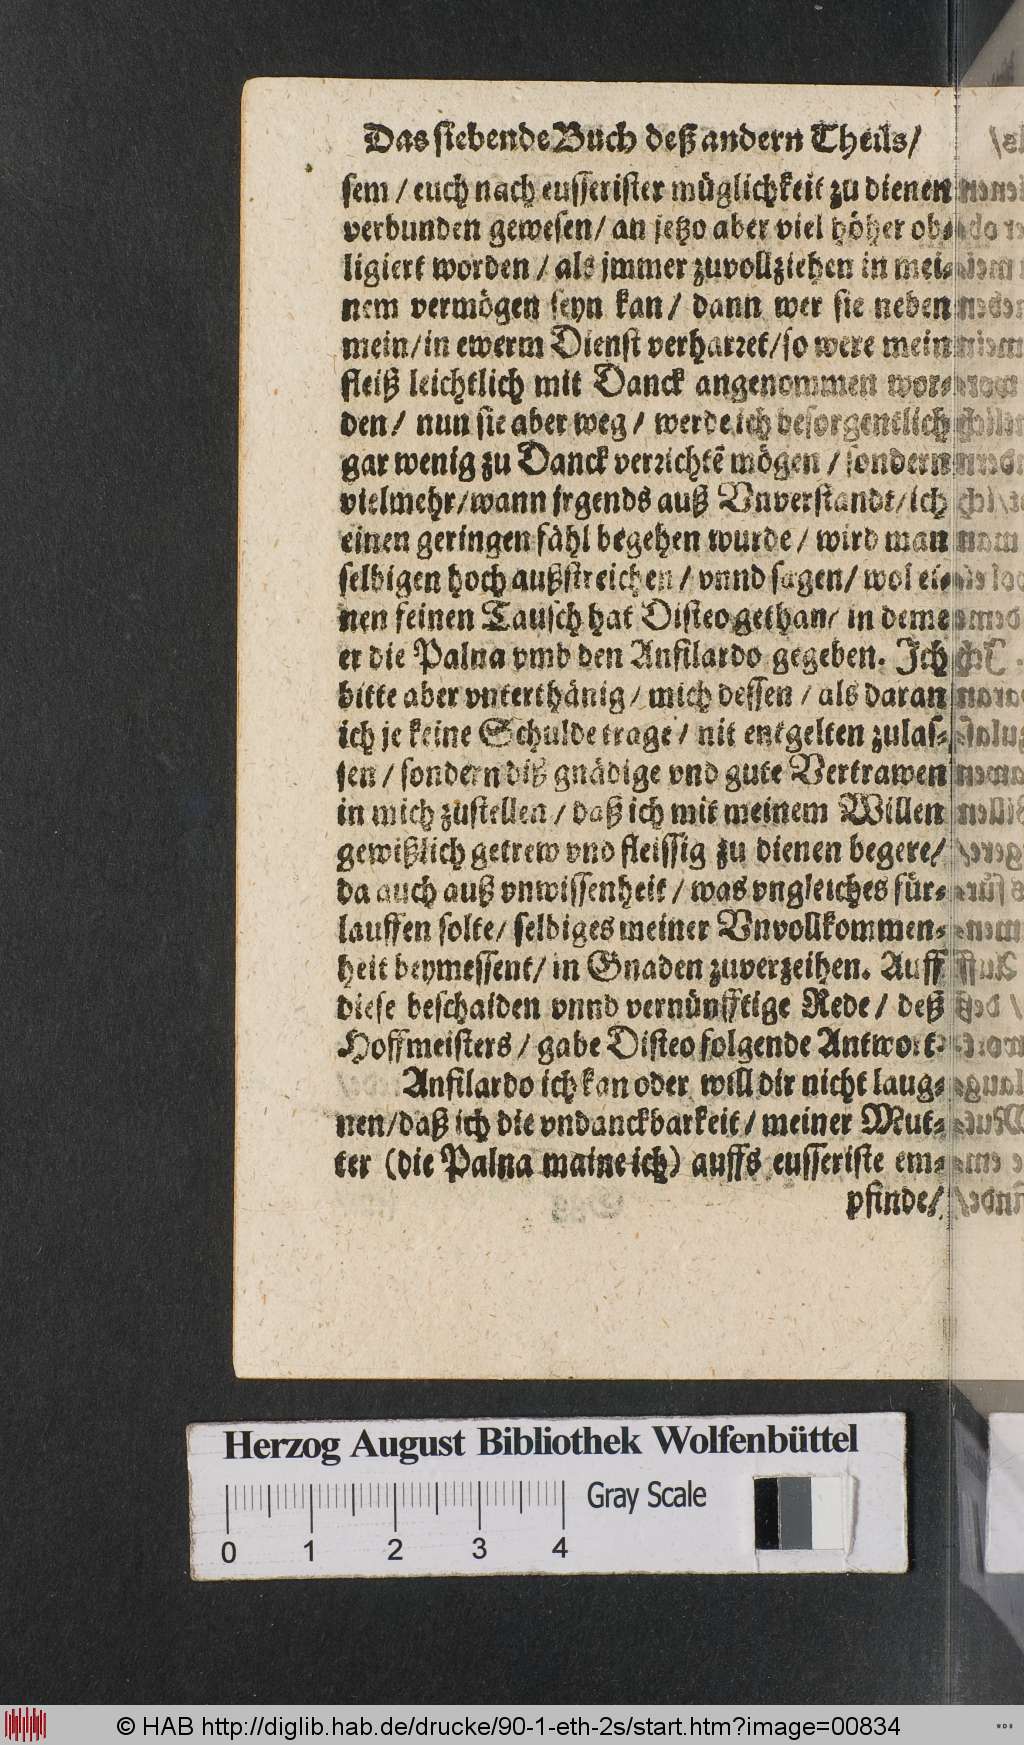 Das siebende Buch deß andern Theils/
sem / euch nach eusserister müglichkeit zu dienen
verbunden gewesen/ an jetzo aber viel höher ob-
ligiert worden / als jmmer zuvollziehen in mei-
nem vermögen seyn kan/ dann wer sie neben
mein/in ewerm Dienst verharret/so were mein
fleiß leichtlich mit Danck angenommen wor-
den/ nun sie aber weg / werde ich besorgentlich
gar wenig zu Danck verrichtẽ mögen / sondern
vielmehr/wann jrgends auß Vnverstandt/ich
einen geringen fähl begehen wurde / wird man
selbigen hoch außstreichen / vnnd sagen/ wol ei-
nen feinen Tausch hat Disteo gethan/ in deme
er die Palna vmb den Anfilardo gegeben. Ich
bitte aber vnterthänig / mich dessen / als daran
ich je keine Schulde trage / nit entgelten zulas-
sen / sondern diß gnädige vnd gute Vertrawen
in mich zustellen / daß ich mit meinem Willen
gewißlich getrew vnd fleissig zu dienen begere/
da auch auß vnwissenheit / was vngleiches für-
lauffen solte/ selbiges meiner Vnvollkommen-
heit beymessent/ in Gnaden zuverzeihen. Auff
diese beschaiden vnnd vernünfftige Rede / deß
Hoffmeisters / gabe Disteo folgende Antwort.
Anfilardo ich kan oder will dir nicht laug-
nen/daß ich die vndanckbarkeit / meiner Mut-
ter (die Palna maine ich) auffs eusseriste em-
pfinde/
Herzog August Bibliothek Wolfenbüttel
Gray Scale
0 1 2 3 4
© HAB http://diglib.hab.de/drucke/90-1-eth-2s/start.htm?image=00834